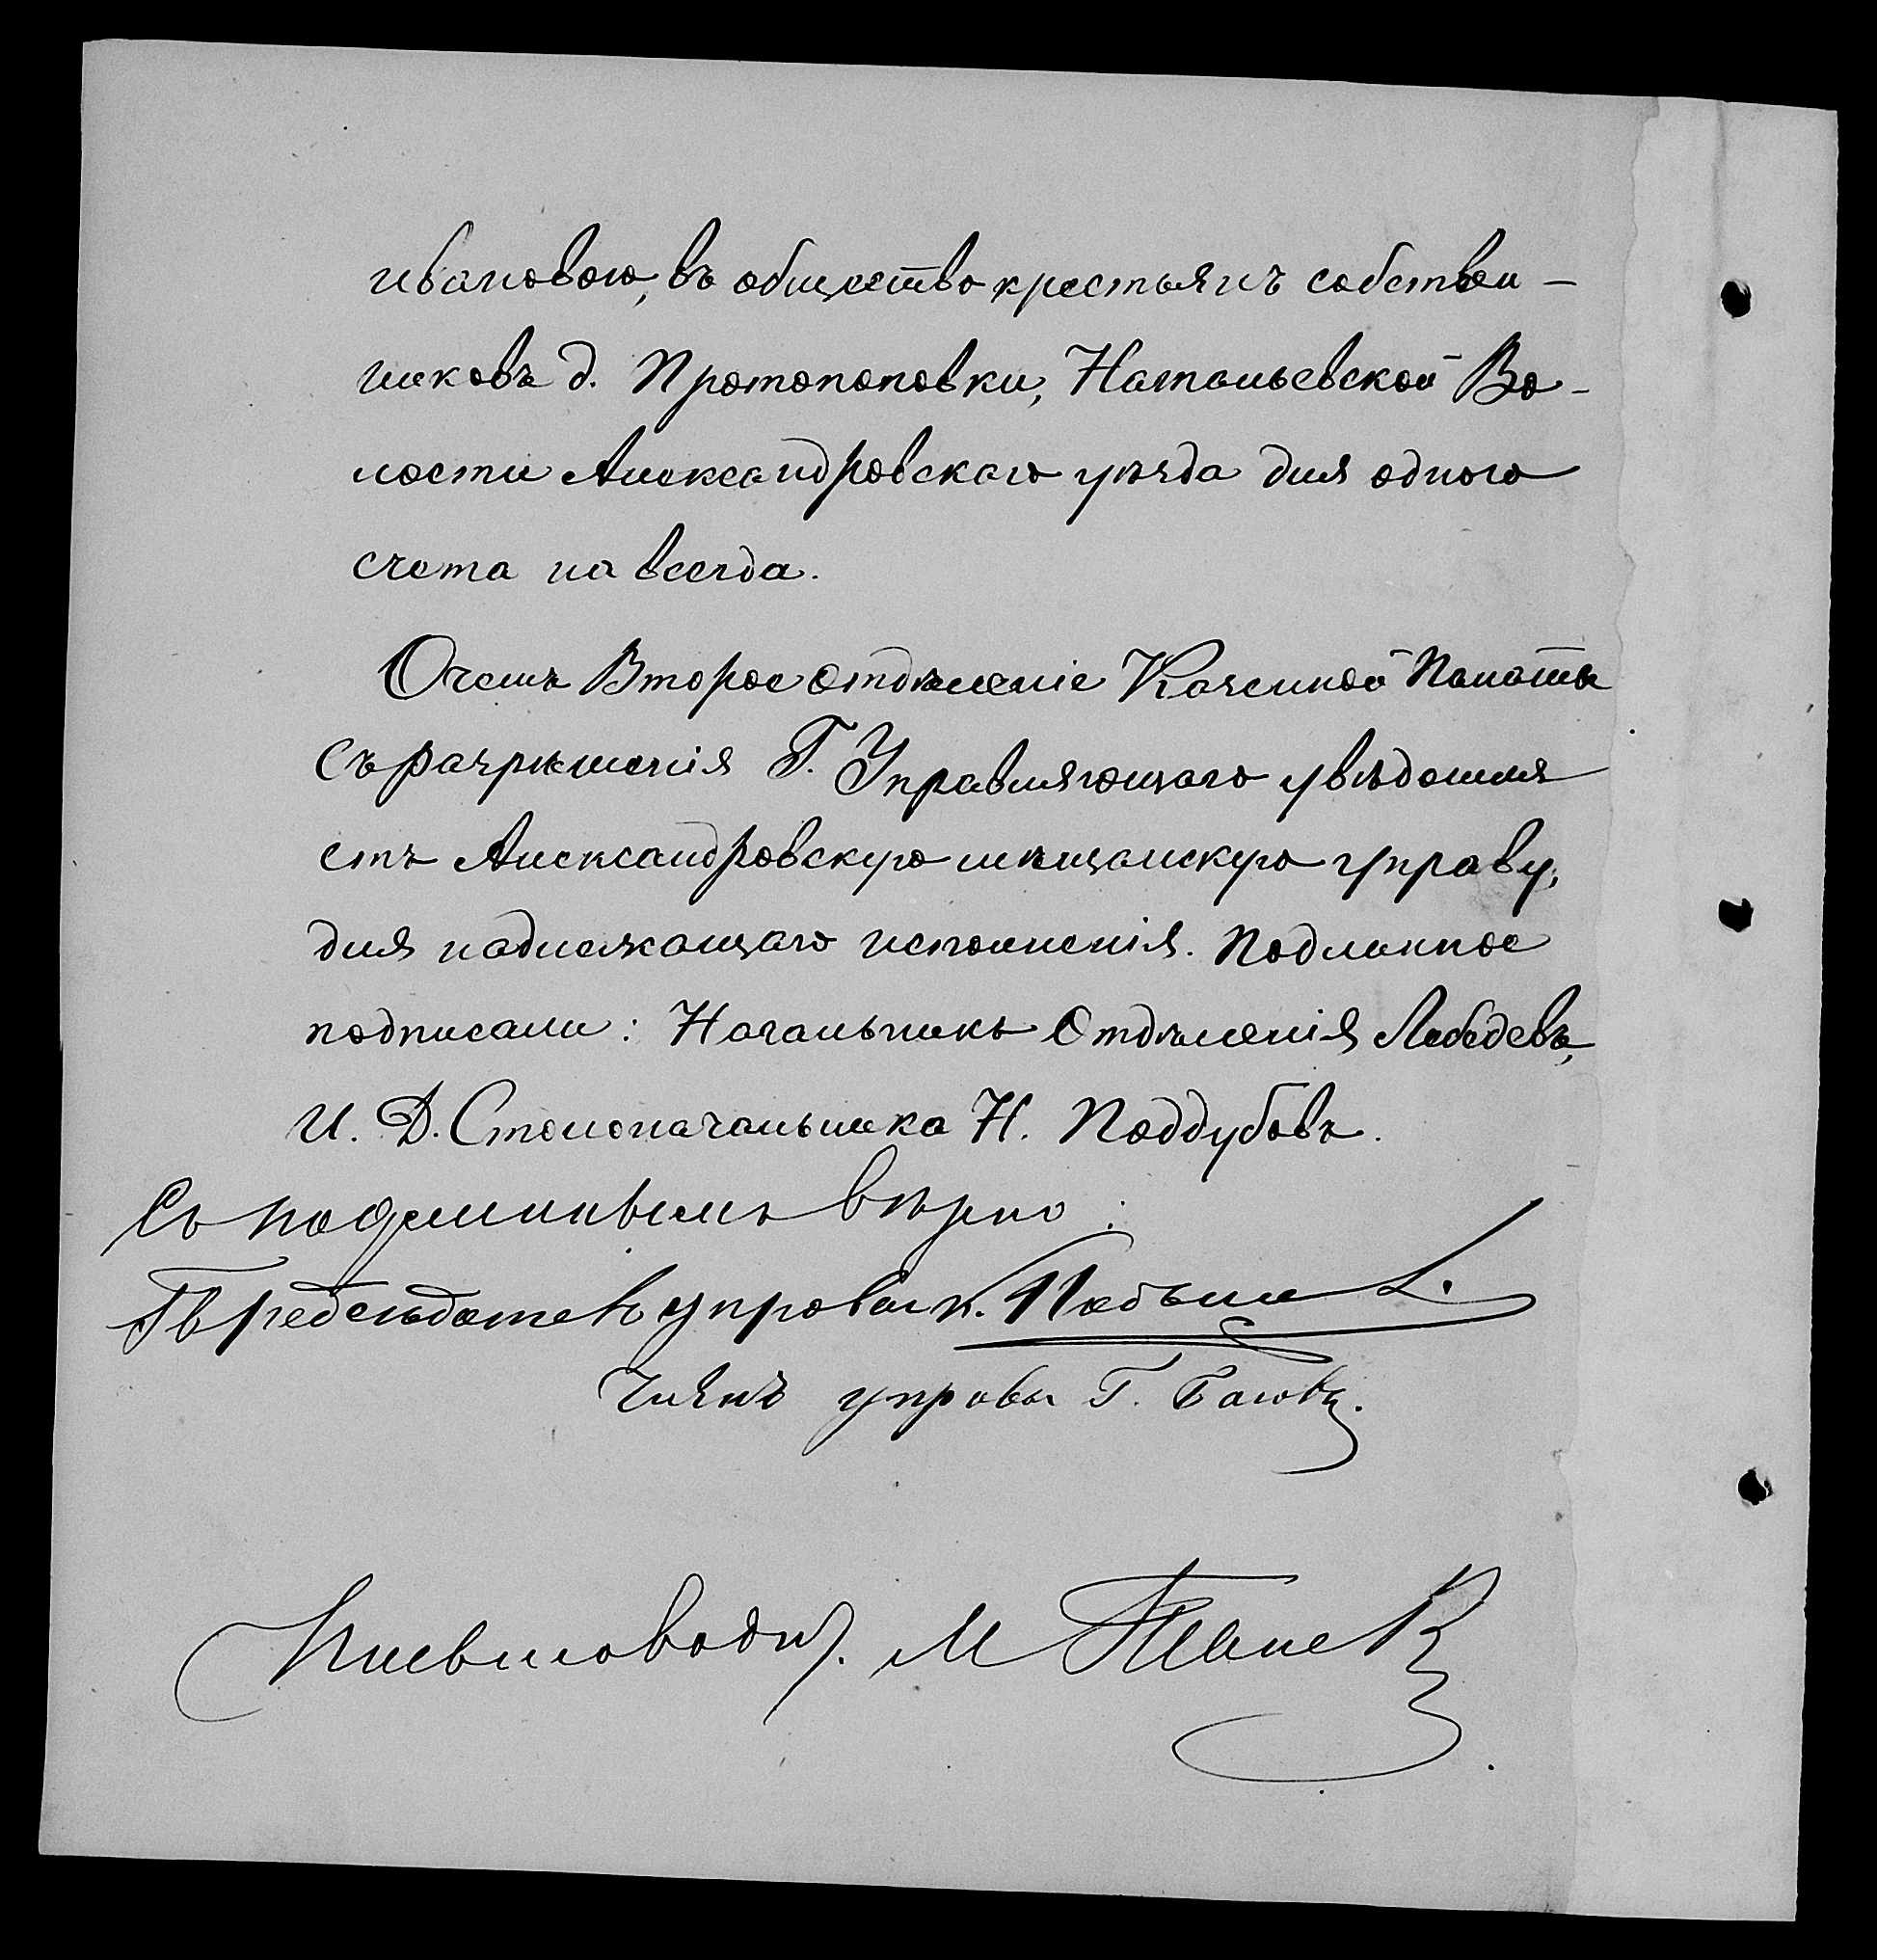 Ивановою, въ общество крестьянъ собствен-
никовъ д. Протопоповки, Натальевской Во-
лости Александровскаго уѣзда для одного
счета на всегда.
О чемъ Второе отдѣленіе Казенной Палаты
съ разрѣшенія Г. Управляющаго увѣдомля
етъ Александровскую мѣщанскую управу,
для надлежащаго исполненія. Подлинное
подписали: Начальникъ Отдѣленія Лебедевъ,
И. Д. Столоначальника Н. Поддубовъ.
Съ подлиннымъ вѣрно:
Предсѣдатель управы
Членъ управы Г.
Письмоводит. М